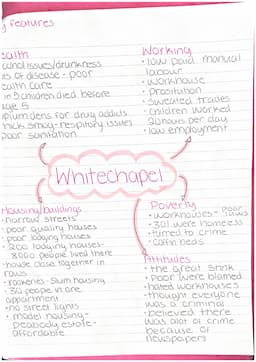 y features
ealth
cohol issues/drunkness
ts of disease - poor
ealth care
in 5 children died before
age 5
opium dens for drug addicts
thick smog - respitory issues
poor sanitation
Working
• low paid manual
labour
• workhouse
• prostitution
• sweated trades
• children worked
20 hours per day
• low employment
Whitechapel
Housing/buildings
• narrow streets
• poor quality houses
• poor lodging houses
• 200 lodging houses -
8000 people lived there
• house close together in
rows
• rookeries - slum housing
• 30 people in one
appartment
• no street lights
• model housing -
peabody estate -
affordable
Poverty
• workhouses - poor laws
• 301 were homeless
• turned to crime
• coffin beds
Attitudes
• the great stink
• poor were blamed
• hated workhouses
• thought everyone
was a criminal
• believed there
was alot of crime
because of
newspapers